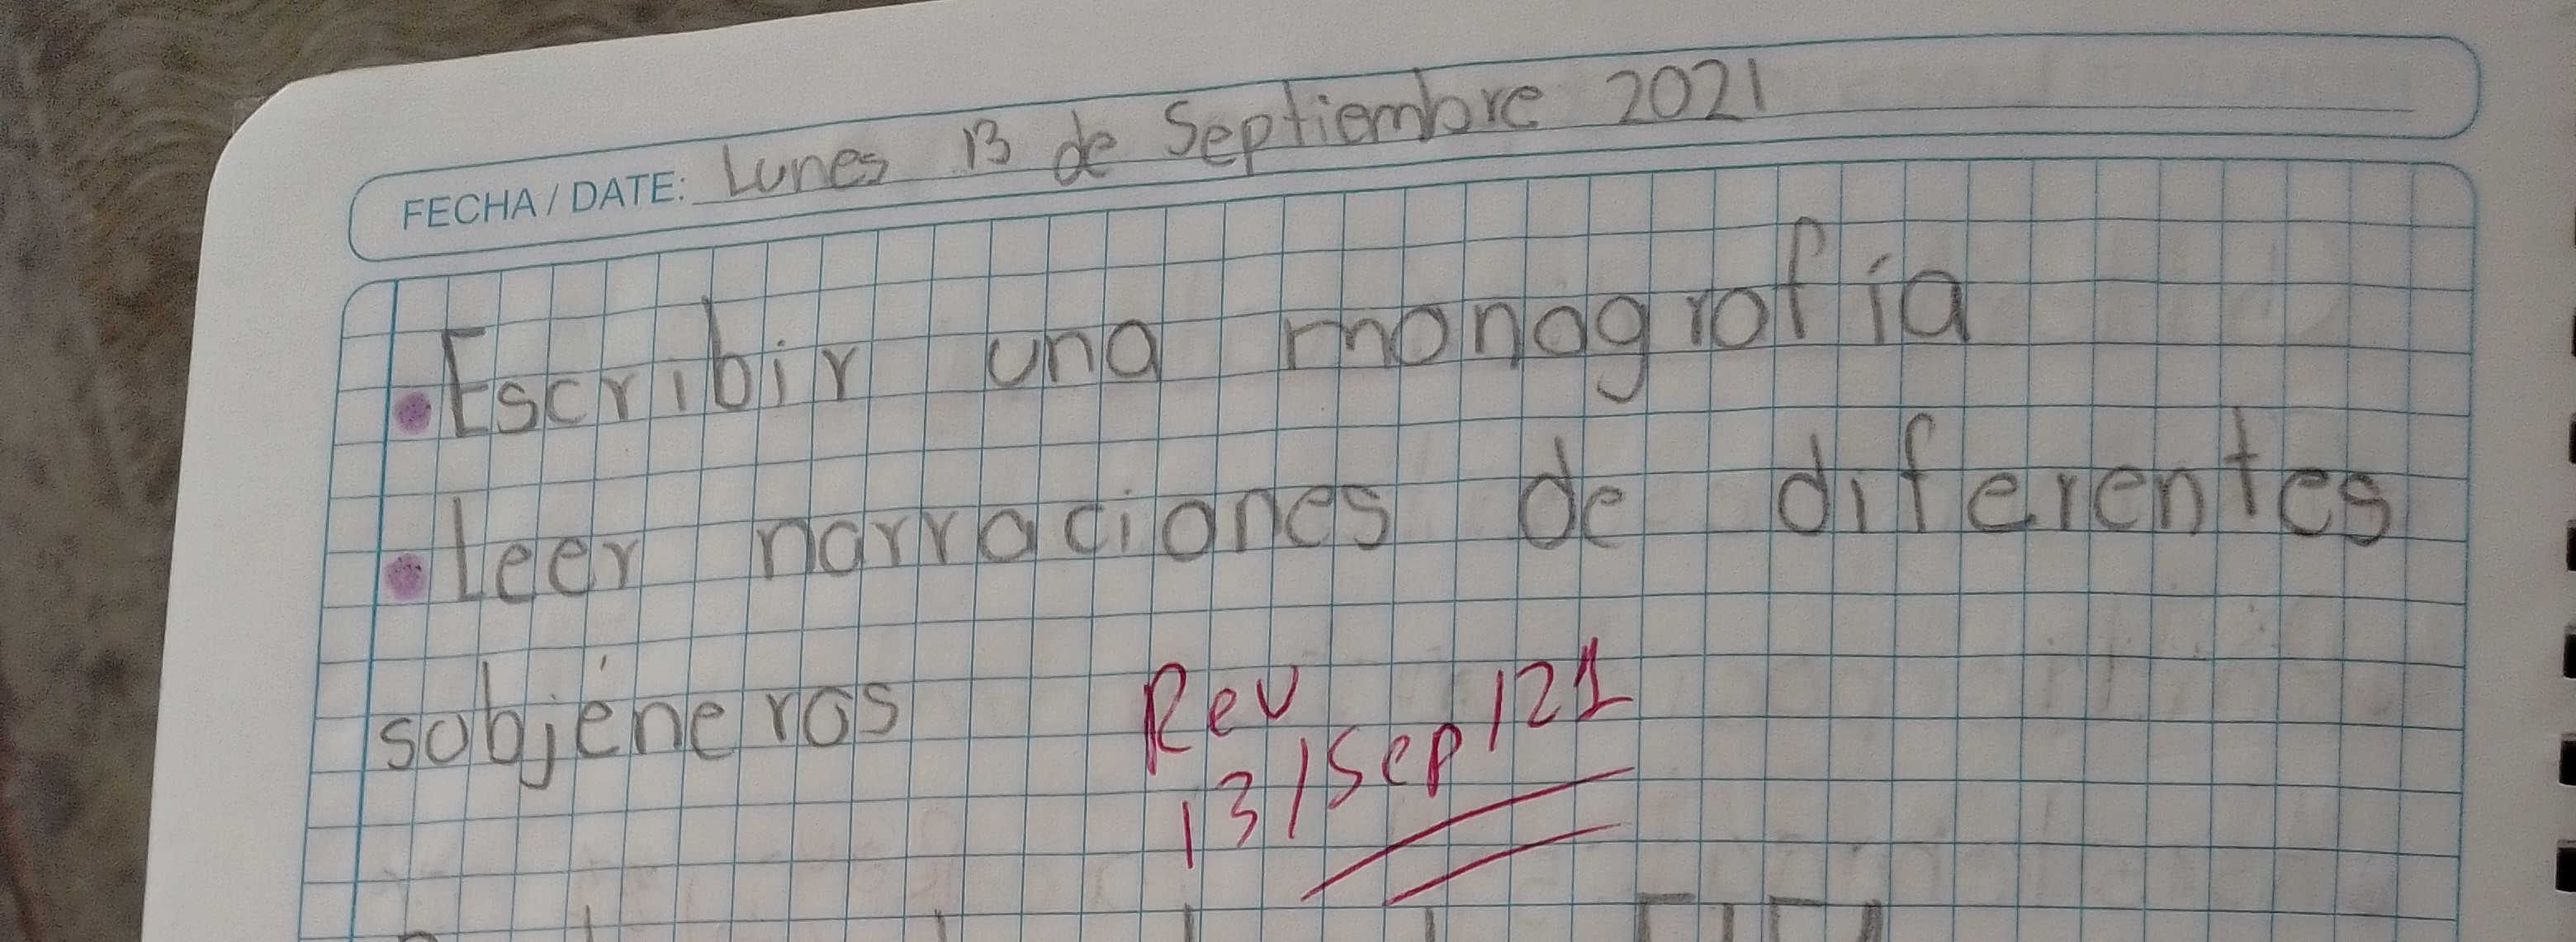 FECHA / DATE: Lunes 13 de Septiembre 2021
• Escribir una monografía
• Leer narraciones de diferentes
subjéneros
Rev
13/Sep/21